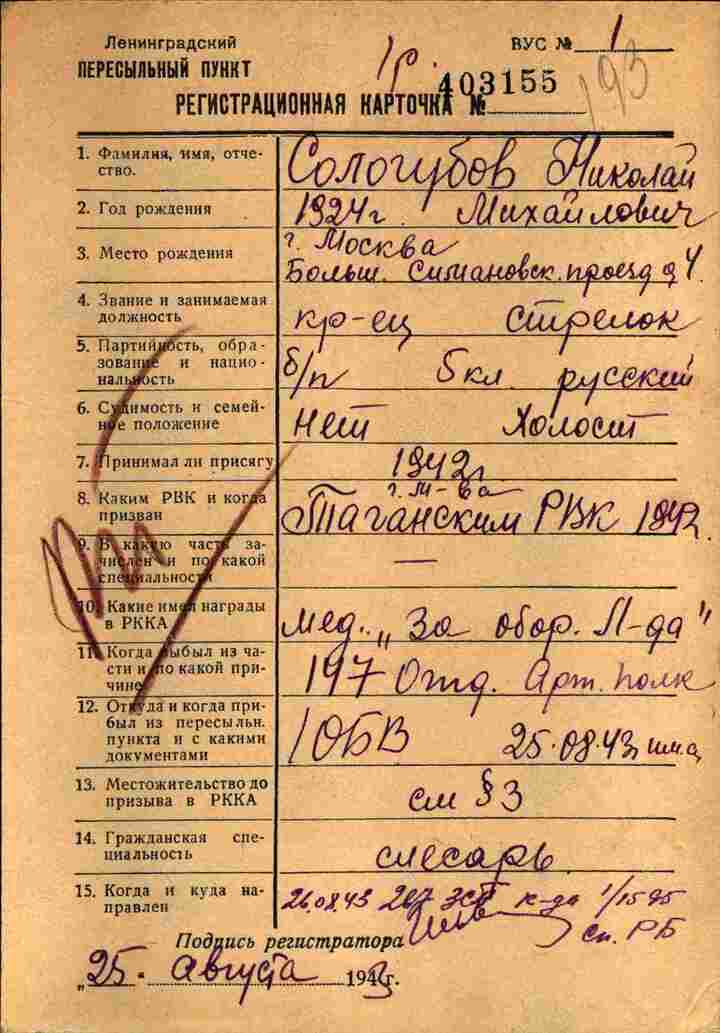 Ленинградский
ПЕРЕСЫЛЬНЫЙ ПУНКТ
ВУС № 1
1р.
403155
193
РЕГИСТРАЦИОННАЯ КАРТОЧКА №
1. Фамилия, имя, отче-
ство.
Сологубов Николай
2. Год рождения
1924 г. Михайлович
3. Место рождения
г. Москва
Больш. Симановск. проезд д 4.
4. Звание и занимаемая
должность
кр-ец стрелок
5. Партийность, обра-
зование и нацио-
нальность
б/п 5 кл. русский
6. Судимость и семей-
ное положение
нет Холост
7. Принимал ли присягу
1942 г
8. Каким РВК и когда
призван
г. М-ва
Таганским РВК 1942.
9. В какую часть за-
числен и по какой
специальности
—
10. Какие имел награды
в РККА
мед. „За обор. Л-да"
11. Когда выбыл из ча-
сти и по какой при-
чине
197 Отд. Арт. полк
12. Откуда и когда при-
был из пересыльн.
пункта и с какими
документами
1 ОБВ 25.08.43
13. Местожительство до
призыва в РККА
см § 3
14. Гражданская спе-
циальность
слесарь.
15. Когда и куда на-
правлен
26.08.43 207 ЗСП к-да 1/1595
сп. РБ
Подпись регистратора
„25. августа 1943г.